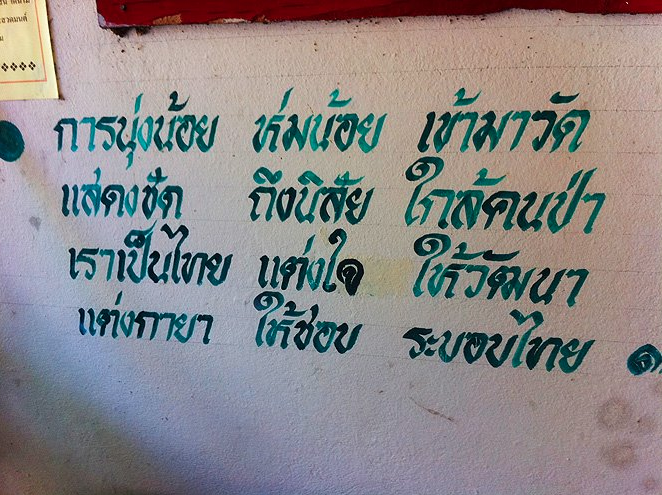 การนุ่งน้อย ห่มน้อย เข้ามาวัด
แสดงชัด ถึงนิสัย ใกล้คนป่า
เราเป็นไทย แต่งใจ ให้วัฒนา
แต่งกายา ให้ชอบ ระบอบไทย